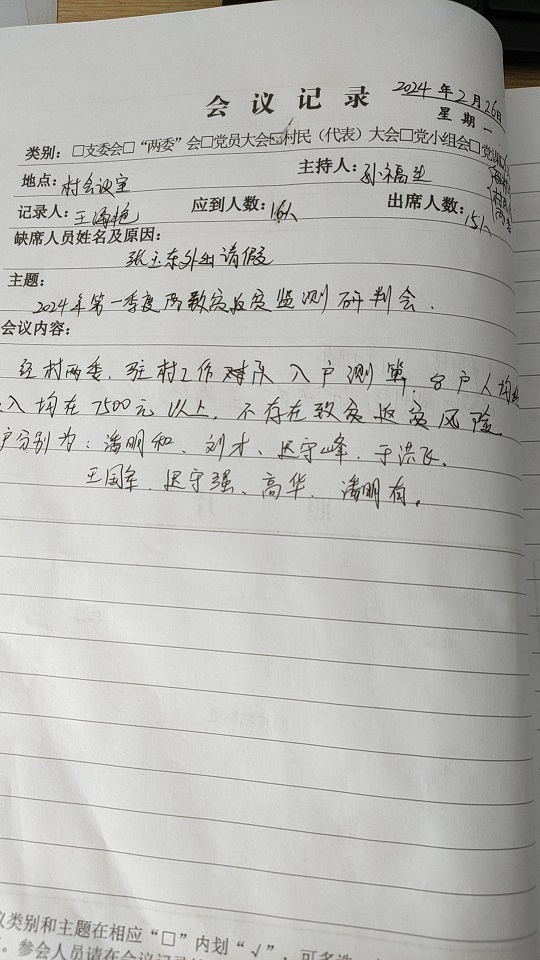 会议记录
2024年2月26日
星期一
类别：□支委会□“两委”会□党员大会☑村民（代表）大会□党小组会□党课
地点：村会议室
主持人：孙福
记录人：王 艳
应到人数：16人
出席人数：15人
缺席人员姓名及原因：
张玉东外出请假
主题：
2024年第一季度防致贫返贫监测研判会.
会议内容：
经村两委、驻村工作队入户测算，8户人均
入均在7500元以上，不存在致贫返贫风险
户分别为：潘明和、刘才、迟守峰、于洪飞、
王国军、迟守强、高华、潘明有。
议类别和主题在相应“□”内划“√”，可多选
参会人员请在会议记录